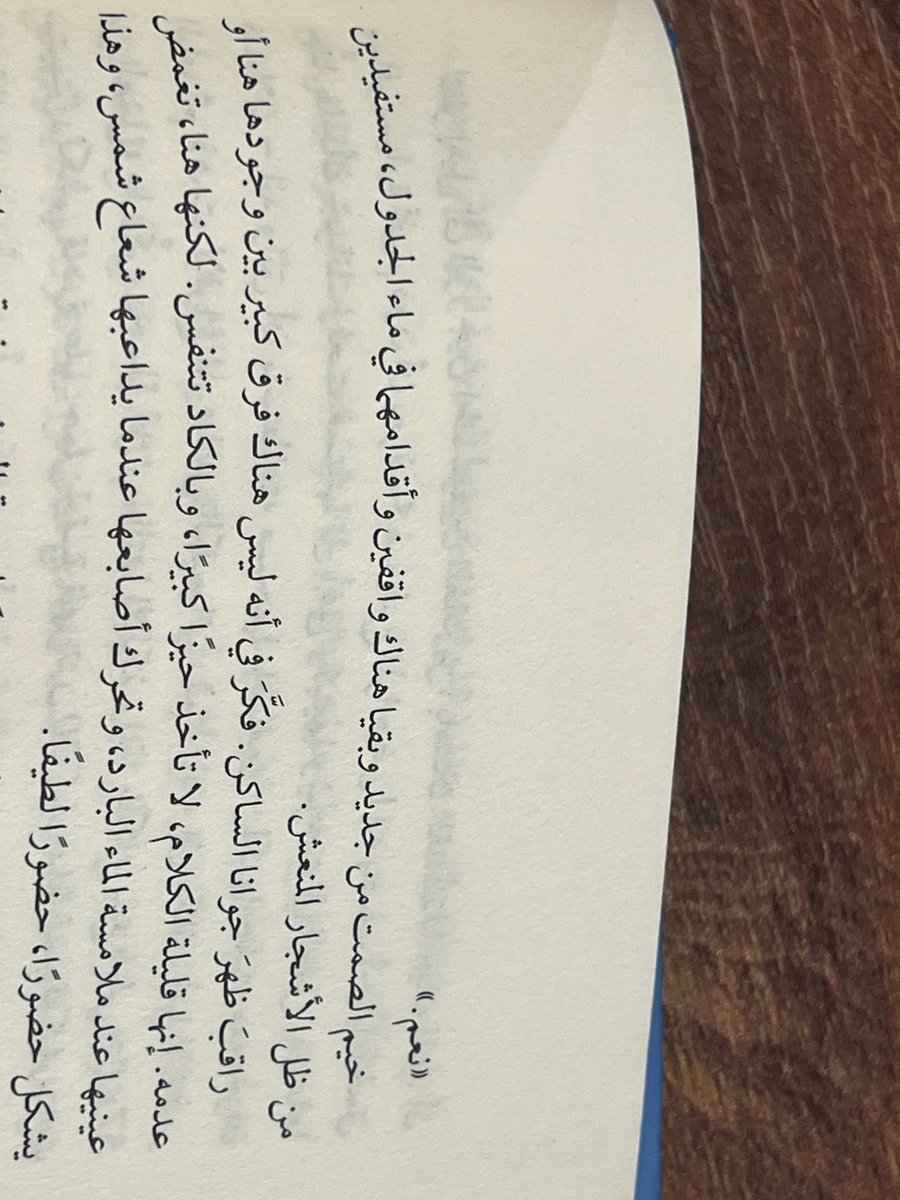 «نعم.»
خيم الصمت من جديد وبقيا هناك واقفين وأقدامهما في ماء الجدول، مستفيدين
من ظل الأشجار المنعش.
راقبَ ظهرَ جوانا الساكن. فكَّرَ في أنه ليس هناك فرق كبير بين وجودها هنا أو
عدمه. إنها قليلة الكلام، لا تأخذ حيزًا كبيرًا، وبالكاد تتنفس. لكنها هنا، تغمض
عينيها عند ملامسة الماء البارد، وتحرك أصابعها عندما يداعبها شعاع شمس، وهذا
يشكل حضورًا، حضورًا لطيفًا.